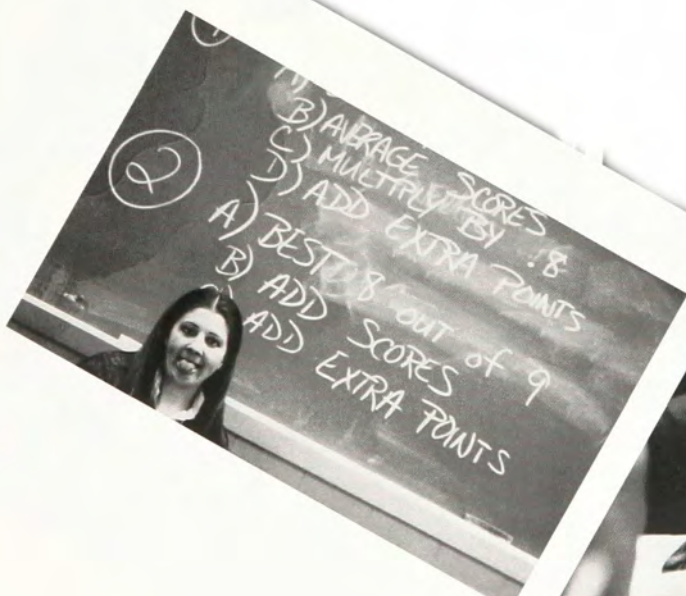 B) AVERAGE SCORES
C) MULTIPLY BY .8
D) ADD EXTRA POINTS
2
A) BEST 8 OUT OF 9
B) ADD SCORES
ADD EXTRA POINTS